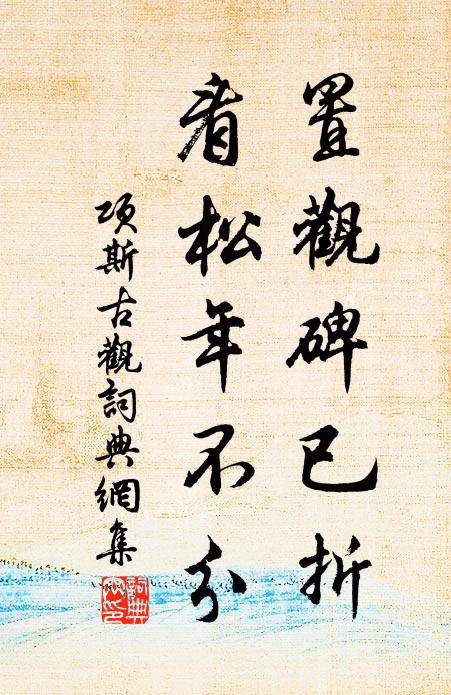 置觀碑已折
看松年不分
項斯古觀詞典網集